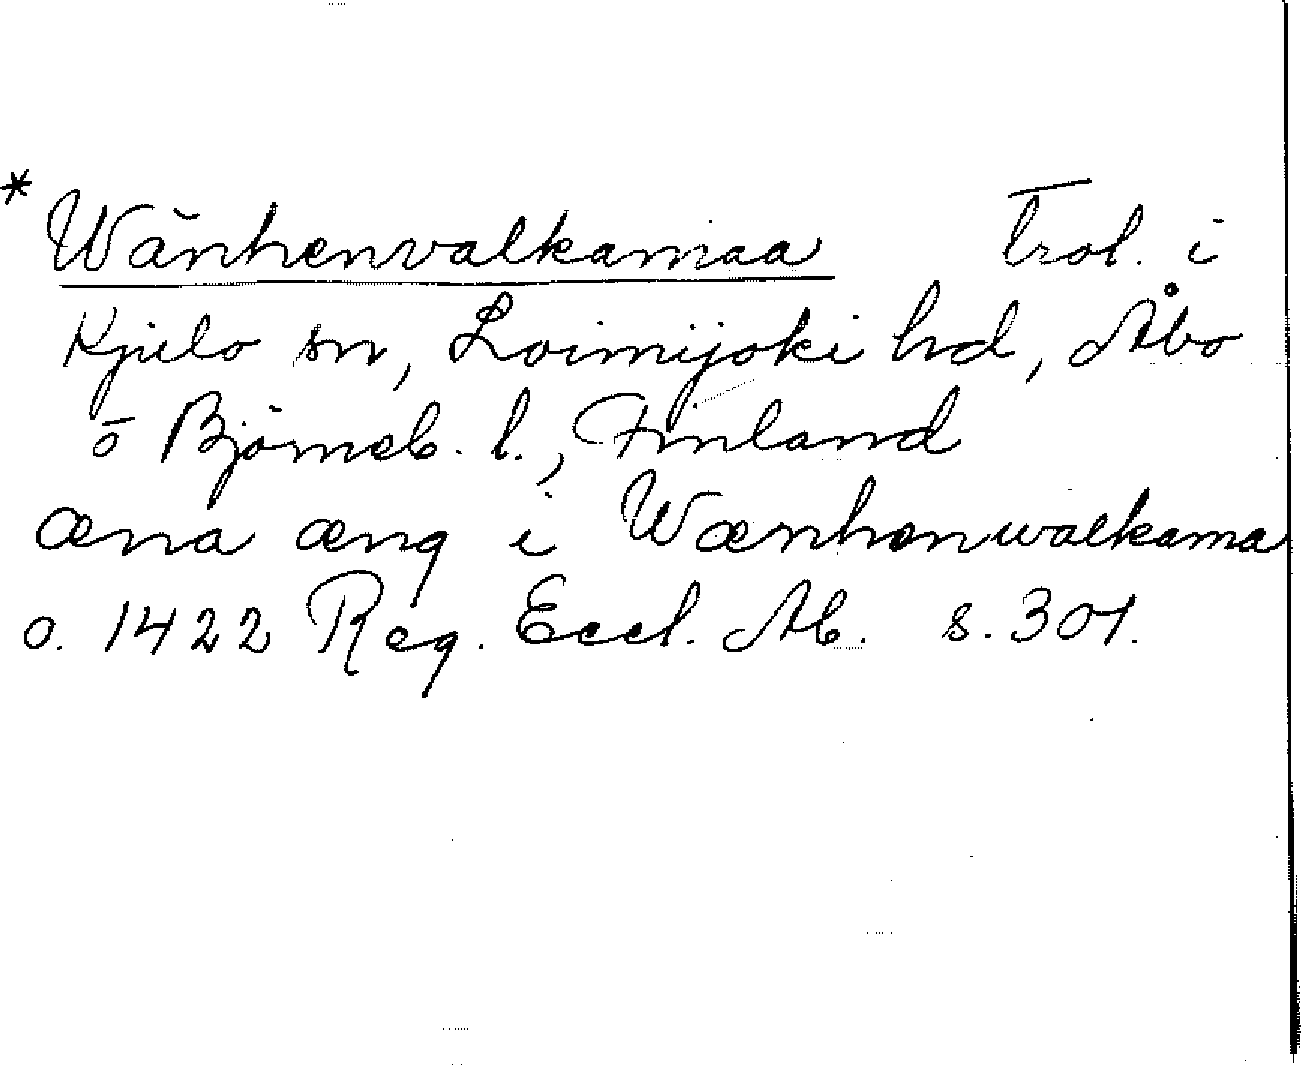 * Wänhenvalkamaa Trol. i
Kjulo sn, Loimijoki hd, Åbo
o Björneb. l., Finland
æna æng i Wænhenwalkama
o. 1422 Reg. Eccl. Ab. s. 301.